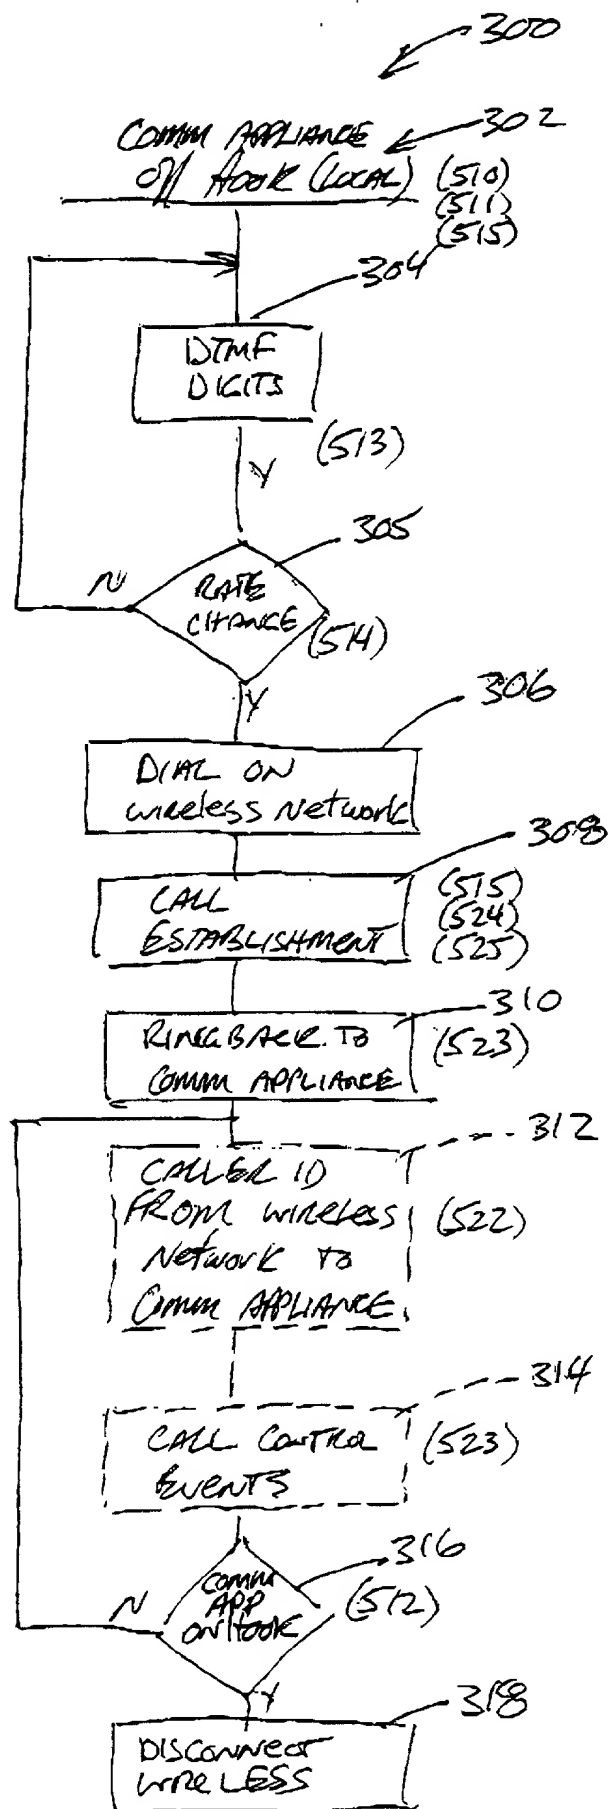 300
COMM APPLIANCE
302
Off HOOK (LOCAL)
(510)
(511)
(515)
304
DTMF
DIGITS
(513)
Y
305
N
RATE
CHANGE
(514)
Y
306
DIAL ON
wireless Network
308
CALL
ESTABLISHMENT
(515)
(524)
(525)
310
RINGBACK TO
COMM APPLIANCE
(523)
312
CALLER ID
FROM wireless
Network TO
COMM APPLIANCE
(522)
314
CALL CONTROL
EVENTS
(523)
316
N
COMM
APP
ON HOOK
(512)
Y
318
DISCONNECT
WIRELESS